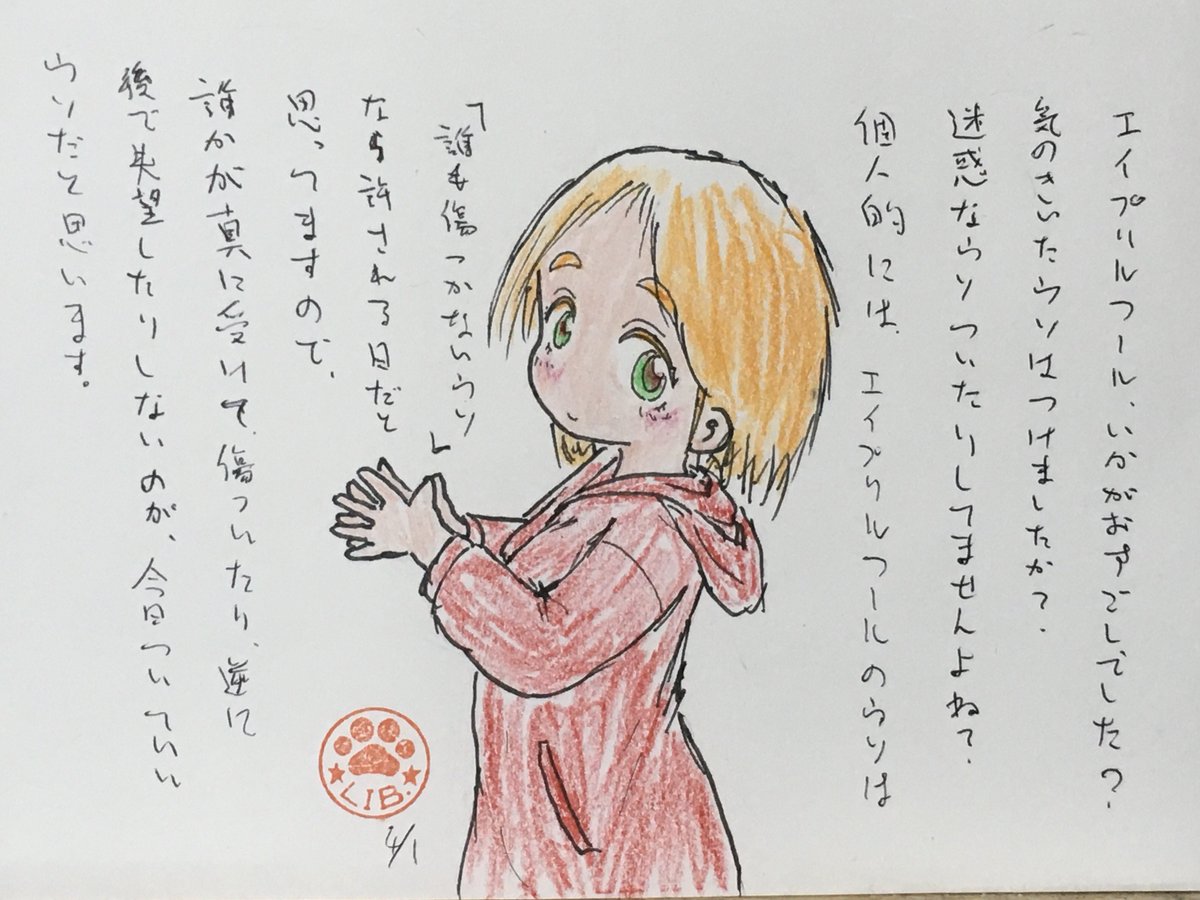 エイプリルフール、いかがおすごしでした?
気のきいたウソはつけましたか?
迷惑なウソついたりしてませんよね?
個人的には、エイプリルフールのウソは
「誰も傷つかないウソ」
なら許される日だと
思ってますので、
誰かが真に受けて、傷ついたり、逆に
後で失望したりしないのが、今日ついていい
ウソだと思います。
LIB.
4/1